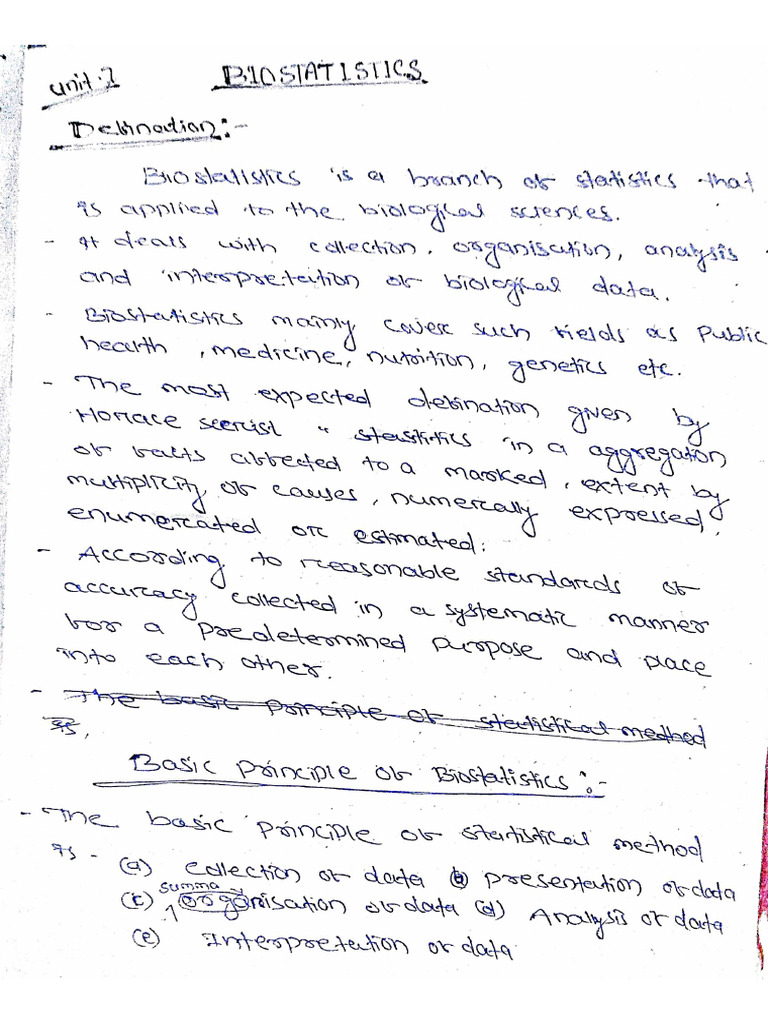 Unit.1 BIOSTATISTICS
Defination:-
Biostatistics is a branch of statistics that
is applied to the biological sciences.
- It deals with collection, organisation, analysis
and interpretation of biological data.
- Biostatistics mainly cover such fields as Public
health, medicine, nutrition, genetics etc.
- The most expected defination given by
Horace secrist " statistics in a aggregation
of facts affected to a marked, extent by
multiplicity of causes, numerically expressed,
enumerated or estimated.
- According to reasonable standards of
accuracy collected in a systematic manner
for a predetermined purpose and place
into each other.
- The basic principle of statistical method
is,
Basic principle of Biostatistics:-
- The basic principle of statistical method
is - (a) collection of data (b) presentation of data
summa
(c) organisation of data (d) Analysis of data
(e) Interpretation of data